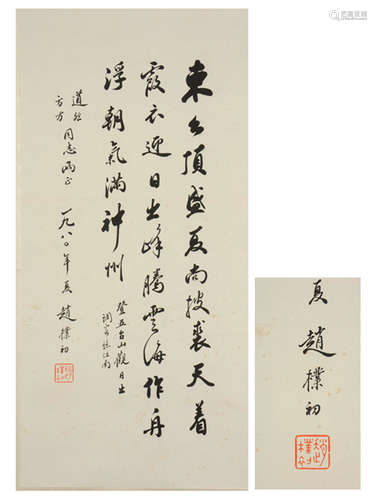 東台頂盛夏尚披裘天着
霞衣迎日出峰騰雲海作舟
浮朝氣滿神州
登五台山觀日出
調寄憶江南
同志兩正
方方
一九八〇年夏 趙樸初
夏 趙樸初